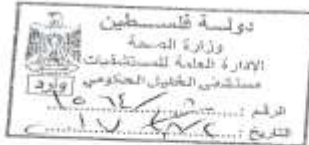 دولة فلسطين
وزارة الصحة
الإدارة العامة للمستشفيات
مستشفى الخليل الحكومي
وارد
الرقم :
التاريخ :